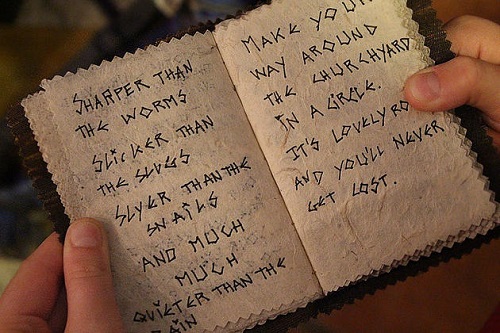 SHARPER THAN
THE WORMS
SLiCKER THAN
THE SLUGS
SLYER THAN THE
SNAILS
AND MUCH
MUCH
QUIETER THAN THE
MAKE YOUR
WAY AROUND
THE CHURCHYARD
IN A CIRCLE.
IT'S LOVELY
AND YOU'LL NEVER
GET LOST.